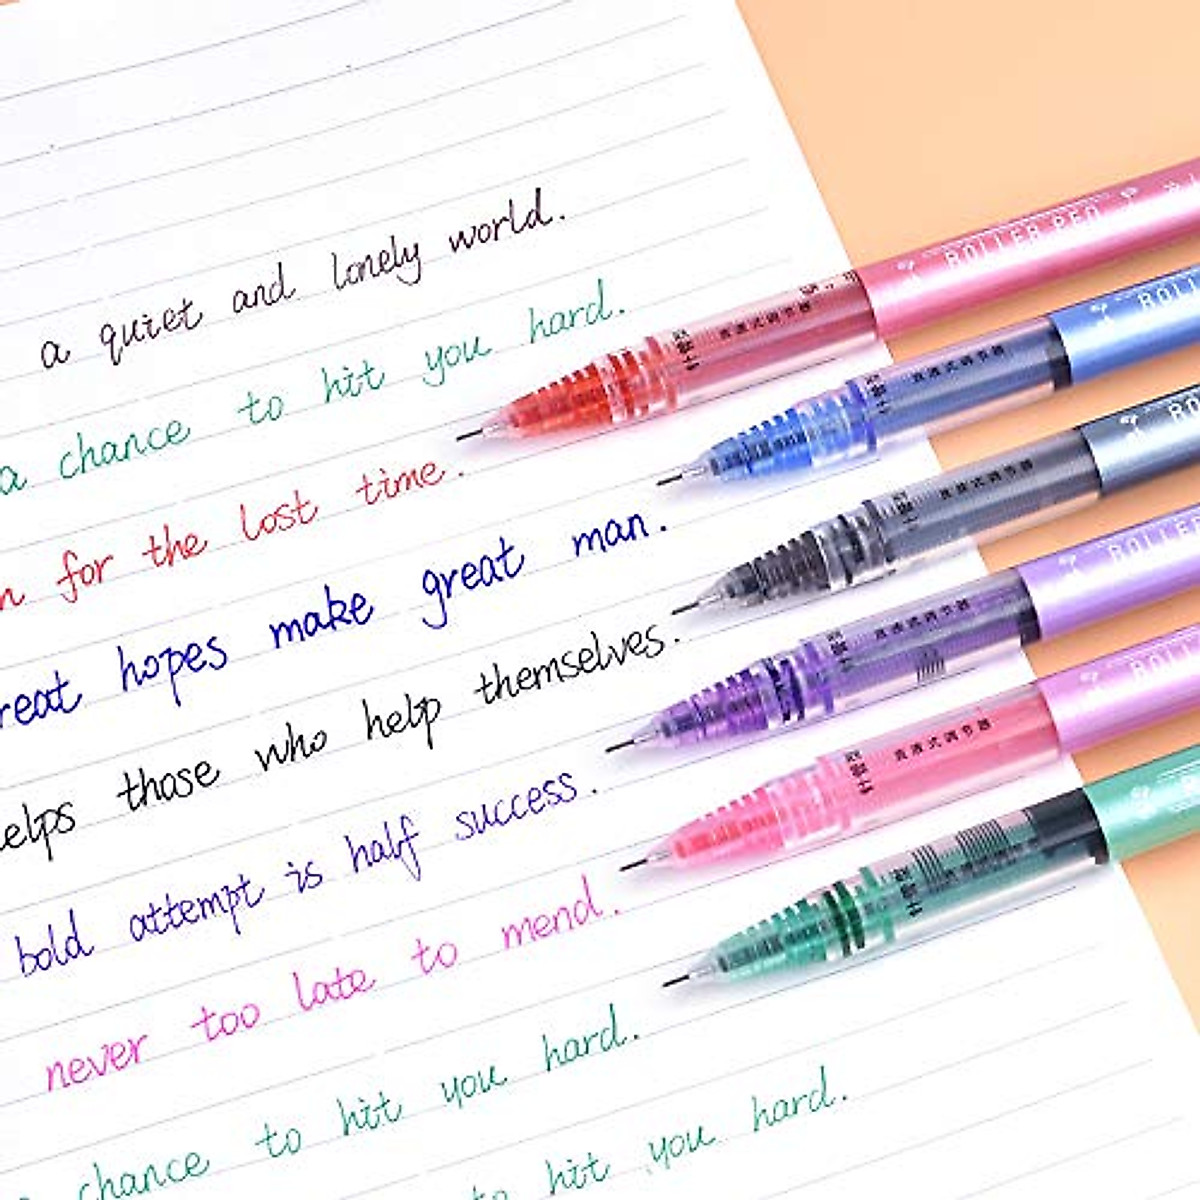 a quiet and lonely world.
a chance to hit you hard.
for the lost time.
reat hopes make great man.
elps those who help themselves.
bold attempt is half success.
never too late to mend.
chance to hit you hard.
to hit you hard.
ROLLER PEN
ROLL
RO
ROLLE
ROLL
针管
直液式调节器
针管
直液式调节器
针管
直液式调节器
针管
直液式调节器
针管
直液式调节器
针管